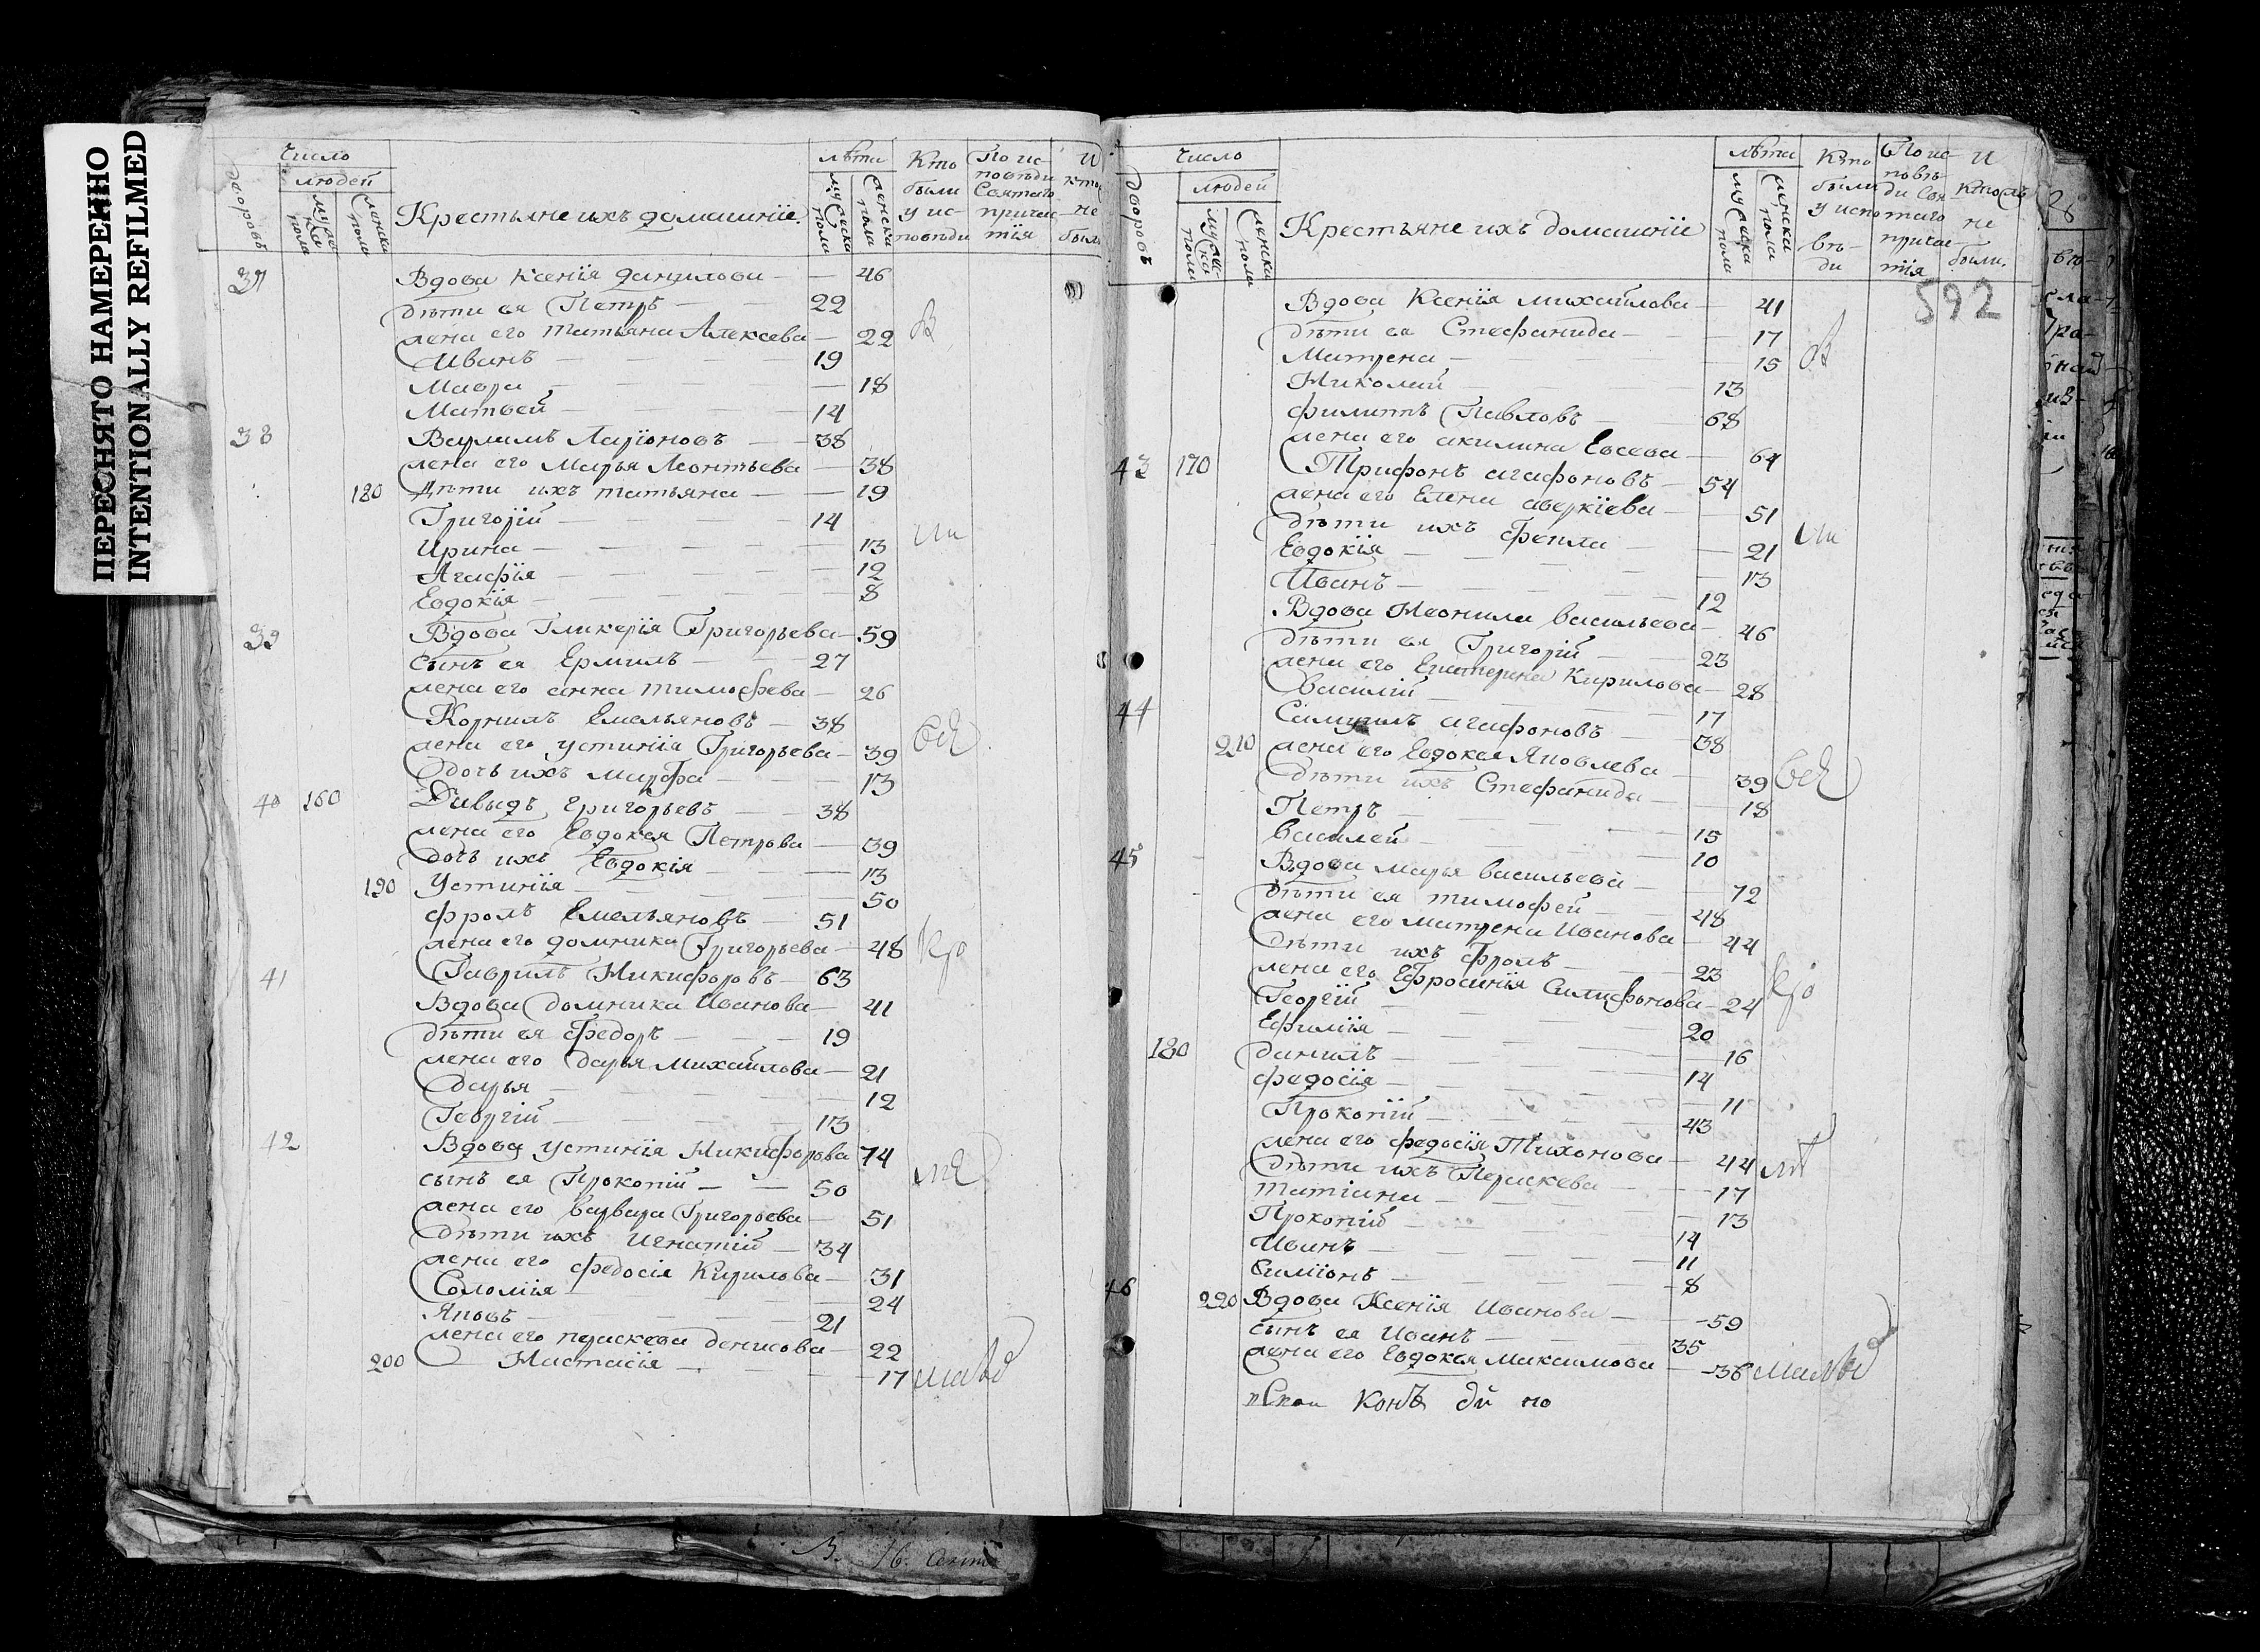 ПЕРЕСНЯТО НАМЕРЕННО
INTENTIONALLY REFILMED
Число лѣта Кто По ис- И
дворовъ людей были повѣди кто
мужеска пола женска пола Крестьяне ихъ домашнїе мужеска пола женска пола у ис- Святаго не
повѣди причас- были
тїя
37 Вдова Ксенїя Данилова — — 46
дѣти ея Петръ — — 22
жена его татьяна Алексѣева — 22
Иванъ — — — 19
Мавра — — — — 18
Матвей — — — 14
38 Варламъ Ларїоновъ — 38
жена его Марья Леонтьева — 38
180 Дѣти ихъ татьяна — — 19
Григорїй — — — 14
Ирина — — — — 13
Агафїя — — — — 12
Евдокїя — — — — 8
39 Вдова Гликерїя Григорьева — 59
сынъ ея Ермилъ — — 27
жена его анна тимофѣева — 26
Корнилъ Емельяновъ — 38
жена его устинїя Григорьева — 39
дочь ихъ марфа — — 13
40 160 Давыдъ григорьевъ — 38
жена его Евдокея Петрова — 39
дочь ихъ Евдокія — — 13
190 Устинїя — — — 50
фролъ Емельяновъ — 51
жена его домника Григорьева — 48
41 Гаврилъ Никифоровъ — 63
Вдова домника Иванова — 41
дѣти ея Федоръ — — 19
жена его дарья михайлова — 21
дарья — — — 12
Георгїй — — — 13
42 Вдова устинїя Никифорова 74
сынъ ея Прокопїй — — 50
жена его варвара Григорьева — 51
дѣти ихъ Игнатїй — 34
жена его федосїя Кирилова — 31
Соломїя — — — 24
Яковъ — — — 21
жена его параскева денисова — 22
200 Настасїя — — — 17
Число лѣта Кто По ис- И
дворовъ людей были повѣ- кто
мужеска пола женска пола Крестьяне ихъ домашнїе мужеска пола женска пола у испо- ди Свя- не
вѣ- таго были
ди причас-
тїя
592
Вдова Ксенїя михайлова — 41
дѣти ея Стефанида — — 17
Матрена — — 15
Николай — — 13
филиппъ Павловъ — 68
жена его акилина Евсеева — 64
43 170 Трифонъ агафоновъ — 54
жена его Елена аверкїева — 51
дѣти ихъ Фекла — — 21
Евдокїя — — — 13
Иванъ — — — 12
Вдова Неонила васильева — 46
дѣти ея Григорїй — — 23
жена его Екатерина Кирилова — 28
Василїй — — — 17
44 Самуилъ агафоновъ — 38
210 жена его Евдокея Яковлева — 39
дѣти ихъ Стефанида — — 18
Петръ — — — 15
василей — — — 10
45 Вдова марья васильева — — 72
дѣти ея тимофей — — 48
жена его матрена Иванова — 44
дѣти ихъ Фролъ — — 23
жена его Ефросинїя — 24
Георгїй — — — 20
Ефимїя — — — 16
180 данилъ — — — 14
федосїя — — — 11
Прокопїй — — — 43
жена его федосїя Тихонова — 44
дѣти ихъ Параскева — — 17
татїана — — — 13
Прокопїй — — — 14
Иванъ — — — 11
Симїонъ — — — 8
46 220 Вдова Ксенїя Иванова — 59
сынъ ея Иванъ — — 35
жена его Евдокея максимова — 38